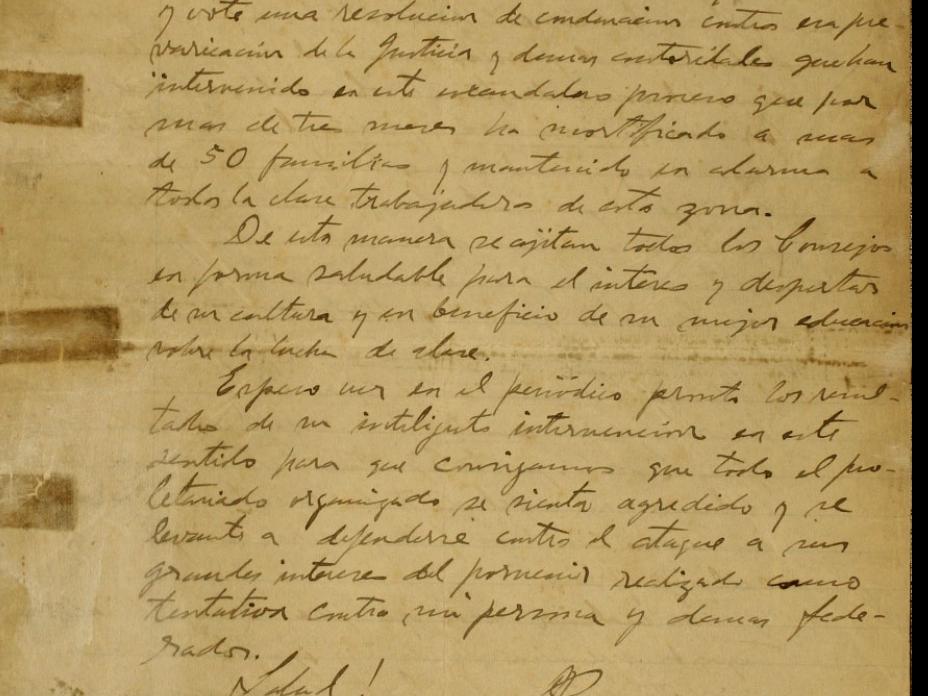 y vote una resolucion de condenacion contra esa pre-
varicacion de la Justicia y demas autoridades que han
intervenido en este escandaloso proceso que por
mas de tres meses ha mortificado a mas
de 50 familias y mantenido en alarma a
toda la clase trabajadora de esta zona.
De esta manera se ajitan todos los Consejos
en forma saludable para el interes y despertar
de su cultura y en beneficio de su mejor educacion
sobre la lucha de clase.
Espero ver en el periódico pronto los resul-
tados de su intelijente intervencion en este
sentido para que consigamos que todo el pro-
letariado organizado se sienta agredido y se
levante a defenderse contra el ataque a sus
grandes intereses del porvenir realizado como
tentativa contra mi persona y demas fede-
rados.
Salud!